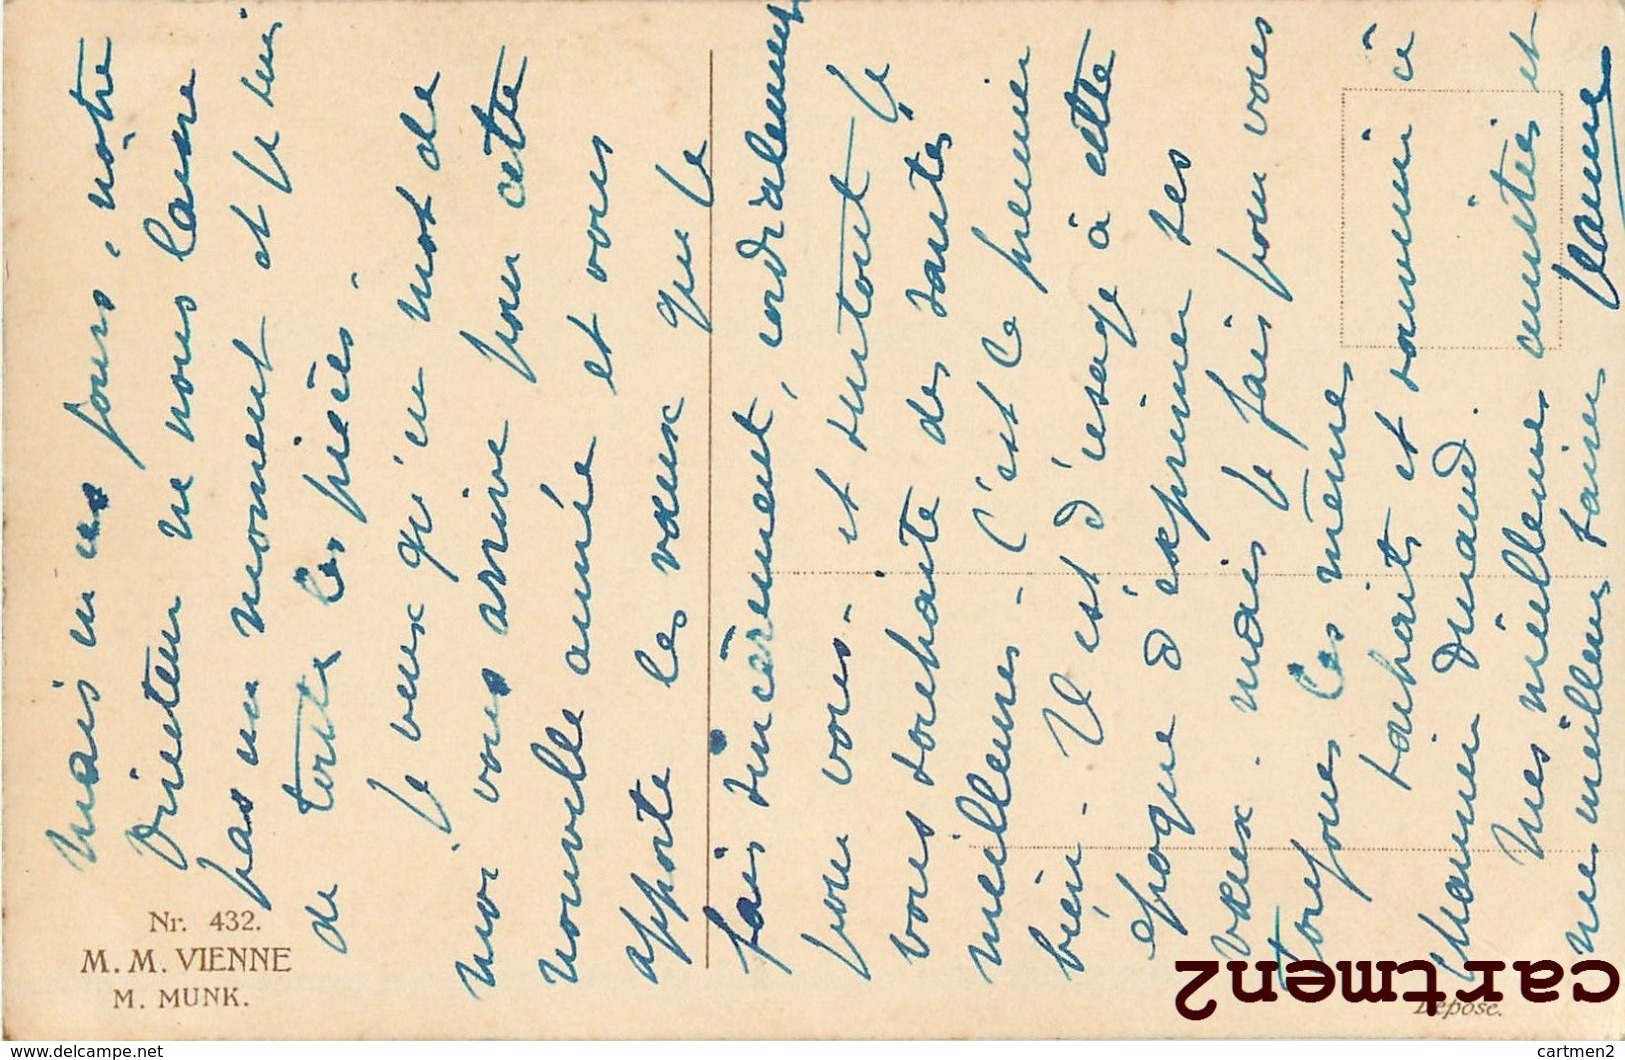 mais en ces jours, notre
Directeur ne nous laisse
pas un moment et je suis
de toutes les pièces.
Je veux qu'un mot de
moi vous arrive pour cette
nouvelle année et vous
apporte les vœux que je
fais sincèrement, cordialement
pour vous - et surtout je
vous souhaite des santés
meilleures - C'est le premier
bien - Il est d'usage à cette
époque d'exprimer ses
vœux. mais je fais pour vous
toujours les mêmes
souhaits et souvenir à
Durand.
Mes meilleures amitiés et
mes meilleurs
Nr. 432.
M. M. VIENNE
M. MUNK.
Déposé.
cartmen2
www.delcampe.net
cartmen2